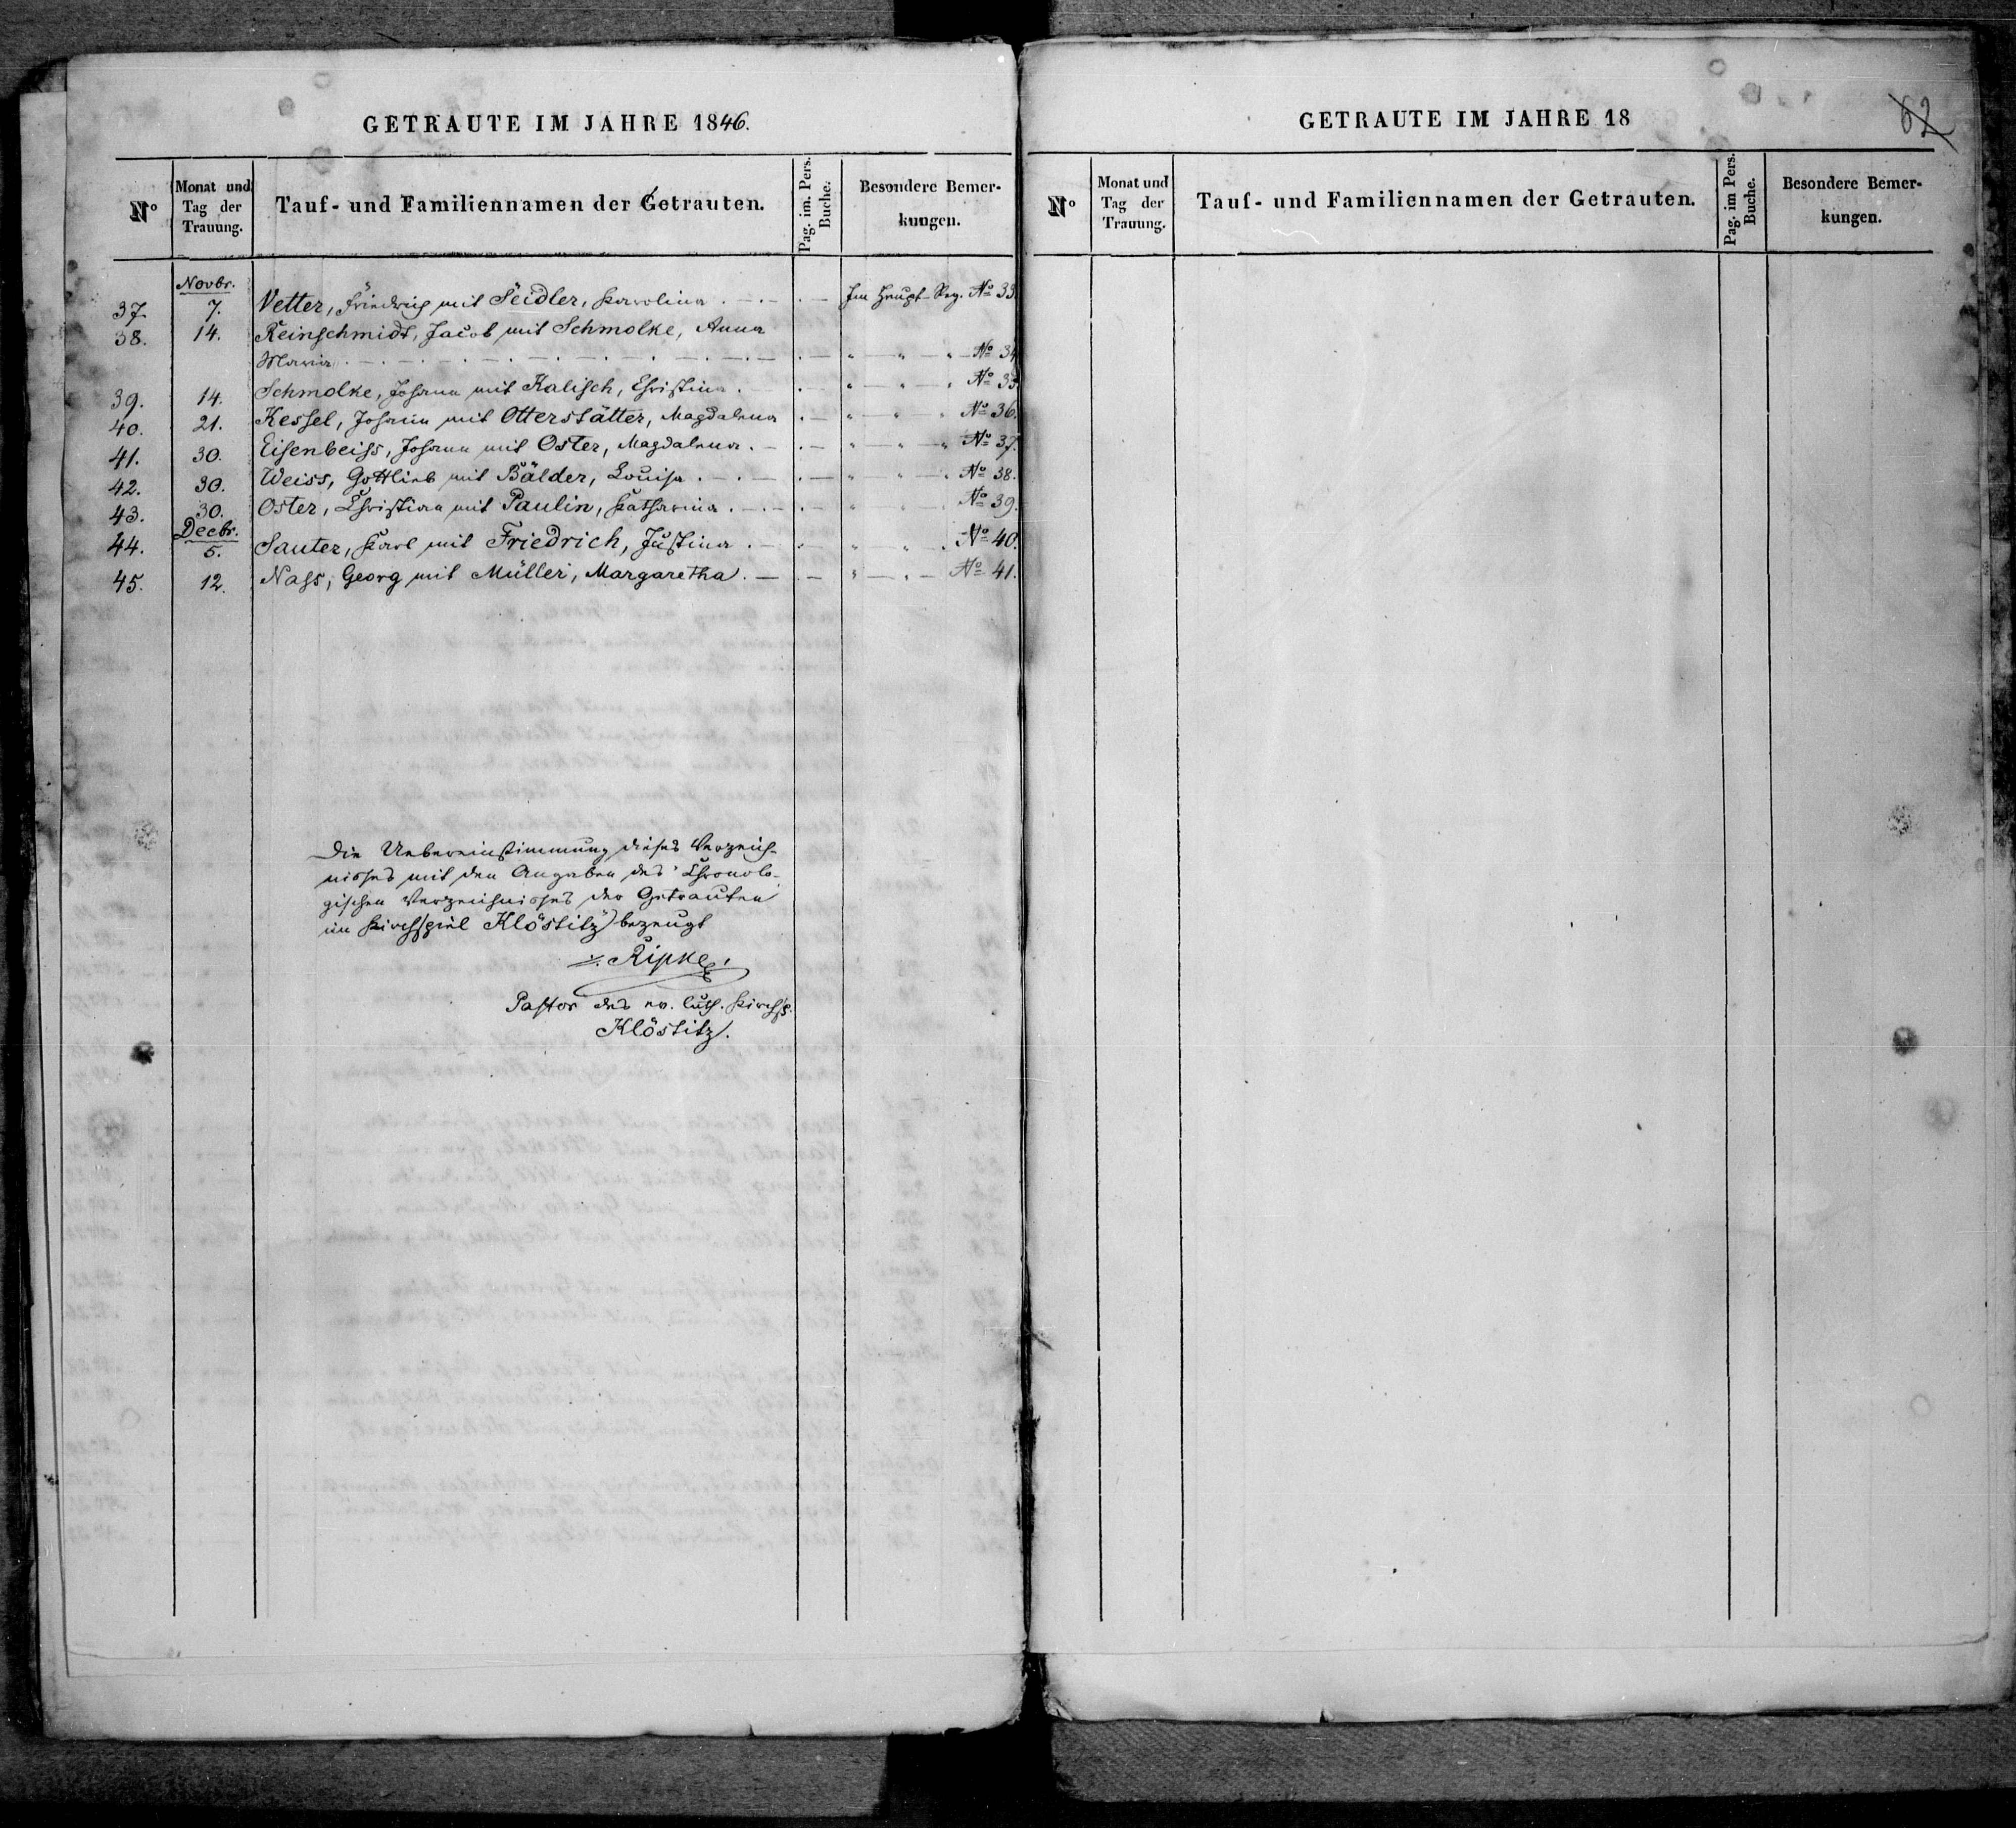 GETRAUTE IM JAHRE 1846.
No Monat und Tag der Trauung. Tauf- und Familiennamen der Getrauten. Pag. im. Pers. Buche. Besondere Bemer-kungen.
Novbr.
37. 7. Vetter, Friedrich mit Seidler, Karolina . — . — . — Im Haupt-Reg. No 33.
38. 14. Reinschmidt, Jacob mit Schmolke, Anna
Maria . — . — . — . — . — . — " — " — " — No 34
39. 14. Schmolke, Johann mit Kalisch, Christina . — . — " — " — " No 35
40. 21. Kessel, Johann mit Otterstätter, Magdalena . — " — " — " No 36.
41. 30. Eisenbeiss, Johann mit Oster, Magdalena . — . — " — " — " No 37.
42. 30. Weiss, Gottlieb mit Bälder, Louisa . — . — . — " — " — " No 38.
43. 30. Oster, Christian mit Paulin, Katharina . — . — . — " " " No 39.
Decbr.
44. 5. Sauter, Karl mit Friedrich, Justina . — . — " — " . No 40.
45. 12. Nass, Georg mit Müller, Margaretha . — . — " — " — No 41.
Die Uebereinstimmung dieses Verzeich-
nisses mit den Angaben des Chronolo-
gischen Verzeichnisses der Getrauten
im Kirchspiel Klöstitz bezeugt
Ripke,
Pastor des ev. luth. Kirchsp.
Klöstitz.
GETRAUTE IM JAHRE 18
62
No Monat und Tag der Trauung. Tauf- und Familiennamen der Getrauten. Pag. im Pers. Buche. Besondere Bemer-kungen.